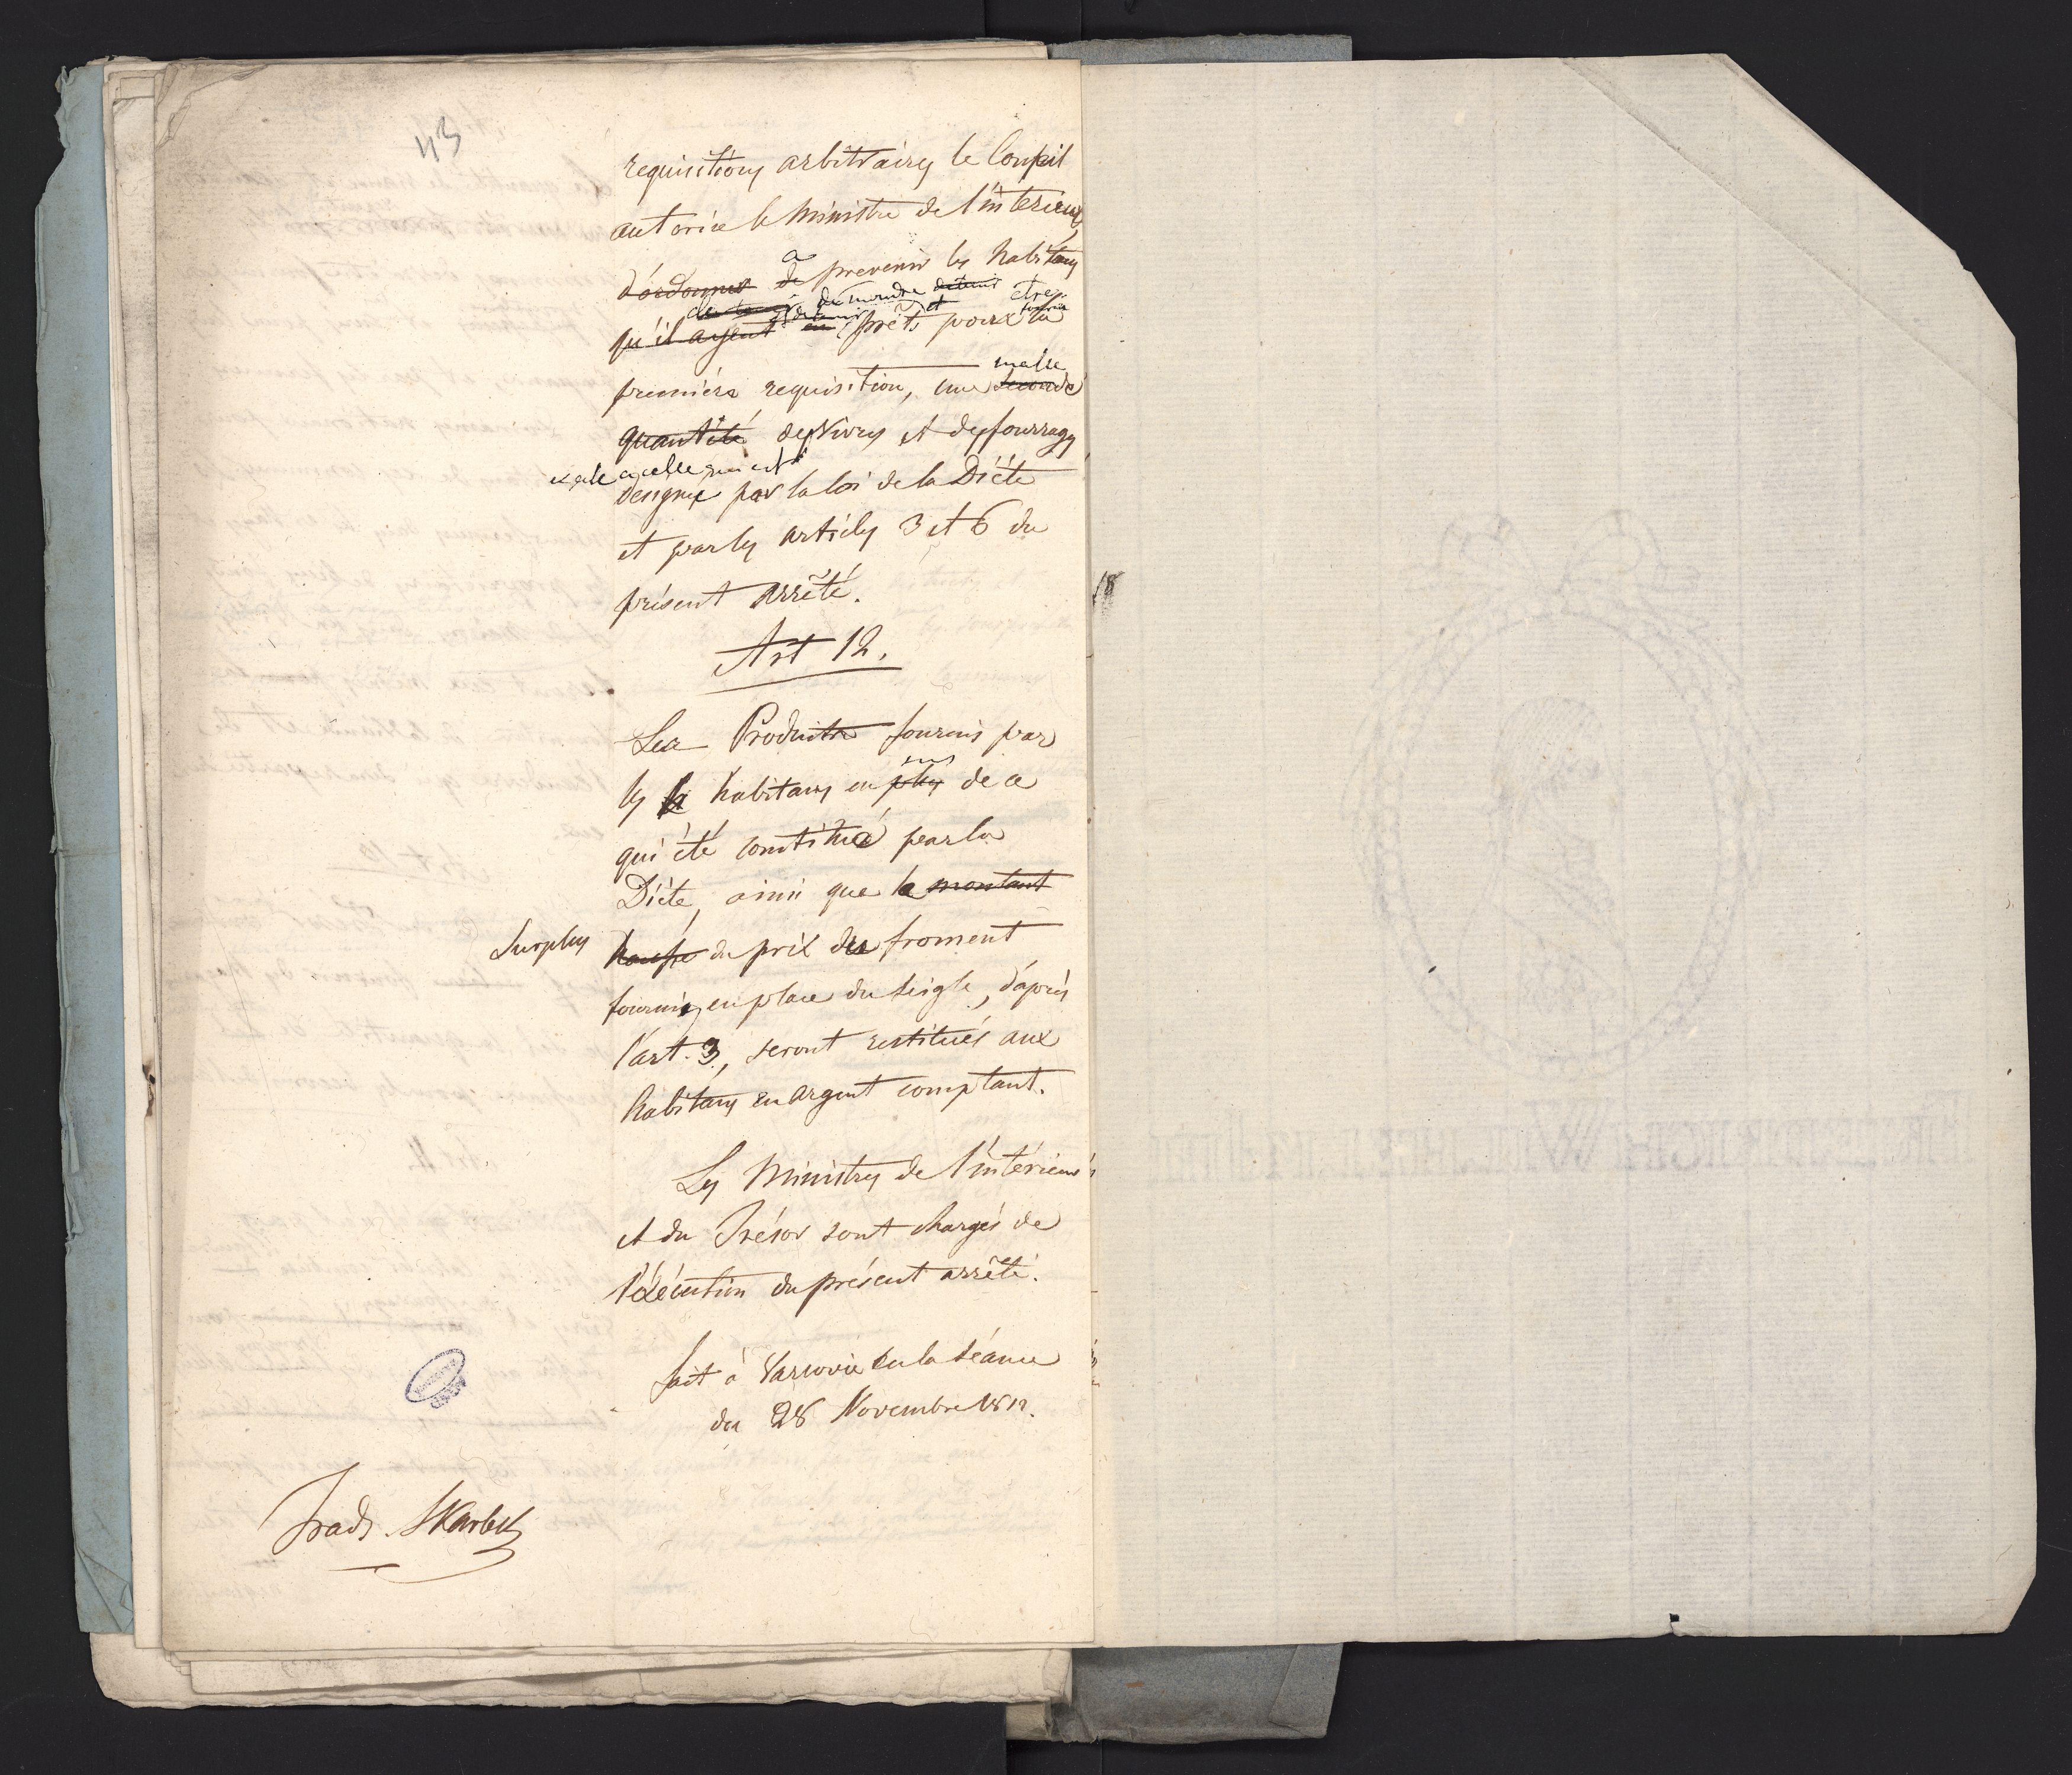 43
requisitions arbitraires le Conseil
autorise le Ministre de l'interieur
d'ordonner de a prevenir les habitans
demandre detenir être
qu'il ayent en prêts pour la
premiére requisition, une seconde masse
quantité des vivres et des fourrages
egale a celle qui est
designée par la loi de la Diéte
et par les articles 3 et 6 du
présent arrêté.
Art 12.
Les Produits fournis par
les habitans en plus de ce
qui été constitué par la
Diéte, ainsi que le montant
Surplus
hausse du prix du froment
fournis en place du seigle, d'après
l'art. 3, seront restitués aux
habitans en argent comptant.
Les Ministres de l'intérieur
et du Trésor sont chargés de
l'éxécution du présent arrêté.
Fait à Varsovie en la séance
du 28 Novembre 1812.
Trad. Skarbek